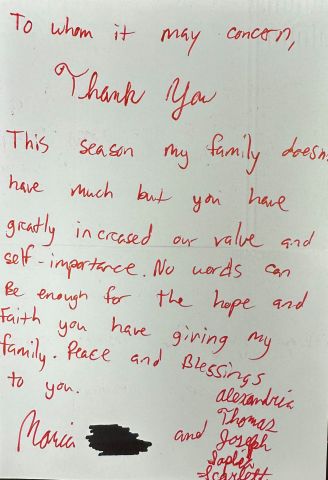 To whom it may concern,
Thank You
This season my family doesn
have much but you have
greatly increased our value and
self-importance. No words can
Be enough for the hope and
Faith you have giving my
family. Peace and Blessings
to you.
Alexandria
Thomas
Maria and Joseph
Sophia
Scarlett